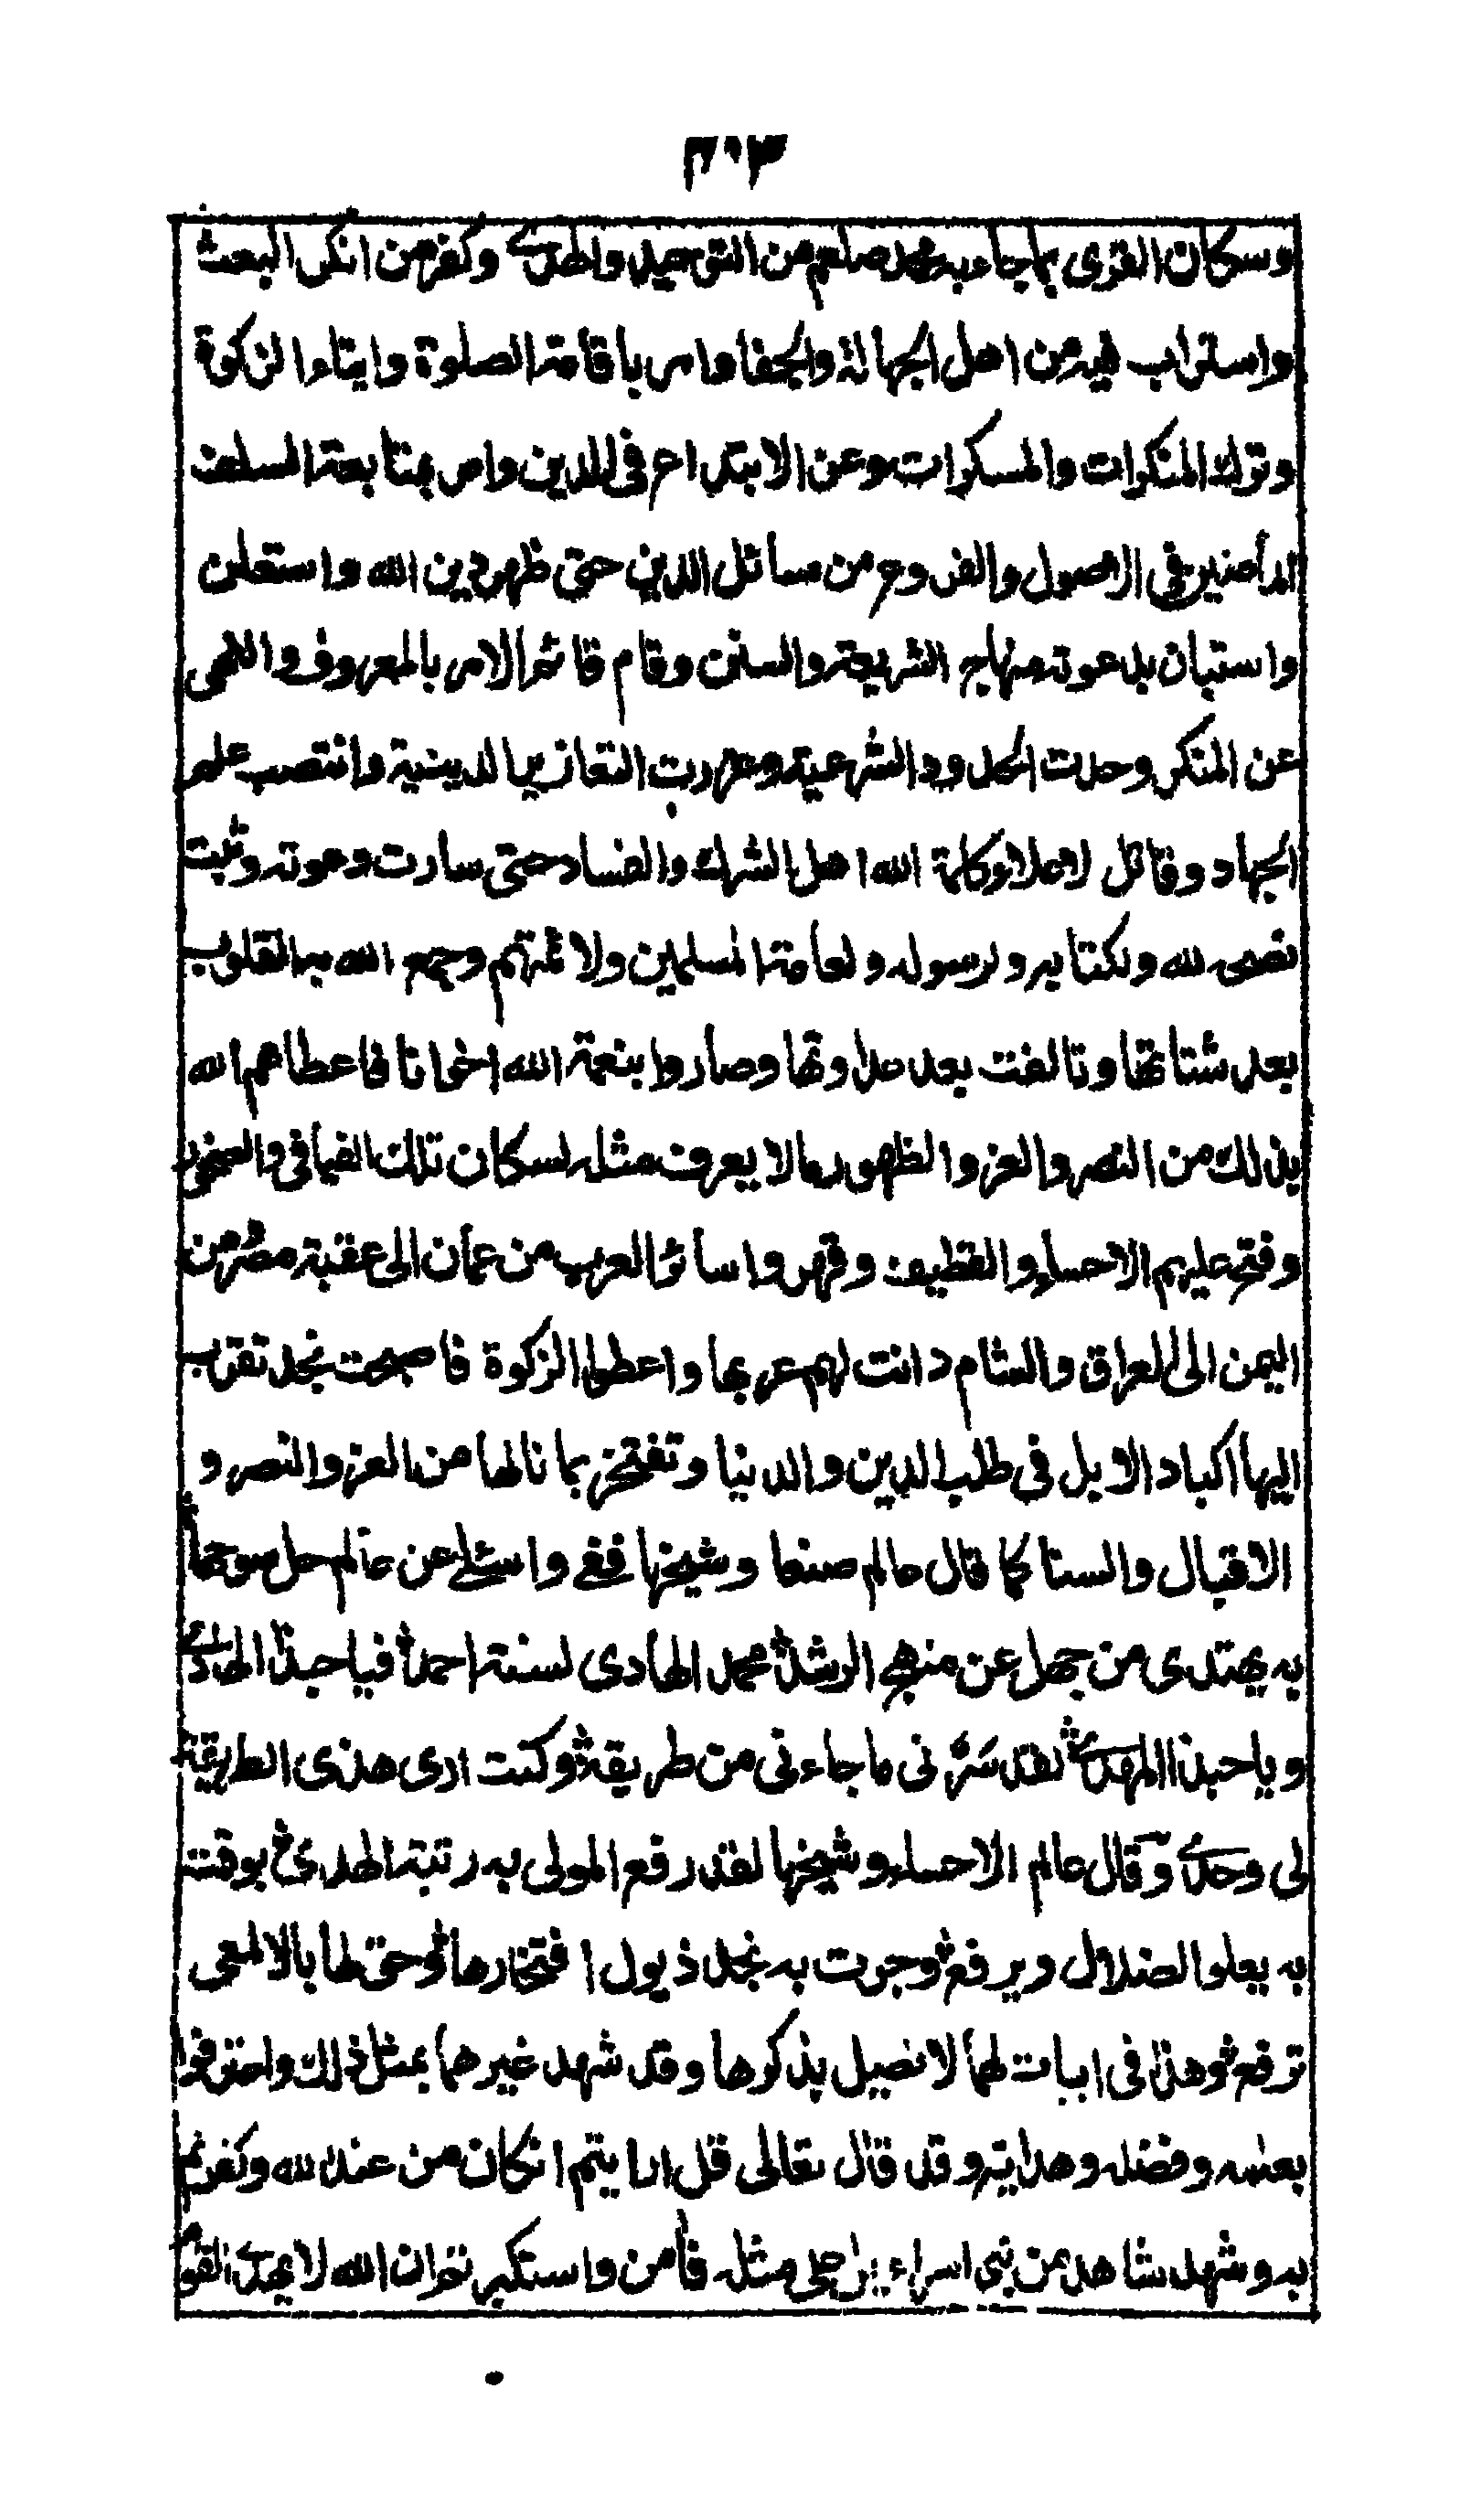 ٣٠٣
وسكان القرى بما جاء به محمد صلعم من التوحيد والهدى وكفر من انكر البعث
واستراب فيه من اهل الجهالة والجفا وامر باقامة الصلوة وايتاء الزكوة
وترك المنكرات والمسكرات وعن الابتداع فى الدين وامر بمتابعة السلف
الماضين فى الاصول والفروع من مسائل الدين حتى ظهر دين الله واستعلن
واستبان بدعوته منهاج الشريعة والسنن وقام قائم الامر بالمعروف والنهى
عن المنكر وحدت الحدود الشرعية وعزرت التعازير الدينية وانتصب علم
الجهاد وقاتل لاعلاء كلمة الله اهل الشرك والفساد حتى سارت دعوته وثبت
نصحه لله ولكتابه ولرسوله ولعامة المسلمين ولائمتهم وجمع الله به القلوب
بعد شتاتها وتالفت بعد عداوتها وصاروا بنعمة الله اخوانا فاعطاهم الله
بذلك من النصر والعز والظهور ما لا يعرف مثله لسكان تلك الفيافى والصخور
وفتح عليهم الاحساء والقطيف وقهروا سائر العرب من عمان الى عقبة مصر ومن
اليمن الى العراق والشام دانت لهم عربها واعطوا الزكوة فاصبحت نجد تضرب
اليها اكباد الابل فى طلب الدين والدنيا وتفتخر بما نالها من العز والنصر و
الاقبال والسنا كما قال عالم صنعا وشيخها قفى واسئلى عن عالم حل سوحها
به يهتدى من جهل عن منهج الرشد محمد الهادى لسنة احمد فيا حبذا الهادى
ويا حبذا المهدى لقد سرنى ما جاءنى من طريقة وكنت ارى هذى الطريقة
لى وحدى وقال عالم الاحساء وشيخها لقد رفع المولى به رتبة الهدى بوقت
به يعلو الضلال ويرفع وجرت به نجد ذيول افتخارها وحق لها بالالمعى
ترفع وهذا فى ابيات لهما لا نطيل بذكرها وقد شهد غيرهما بمثل ذلك واعترفوا
بعلمه وفضله وهدايته وقد قال تعالى قل ارايتم انكان من عند الله وكفرتم
به وشهد شاهد من بنى اسراءيل على مثله فآمن واستكبرتم ان الله لا يهدى القوم